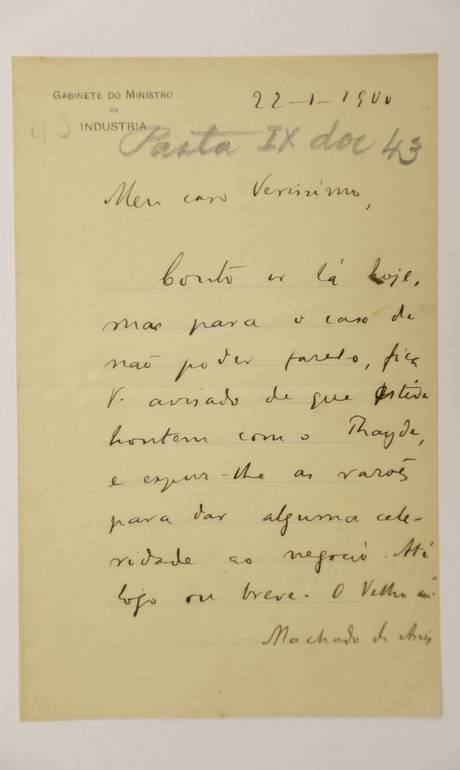 GABINETE DO MINISTRO
DA
INDUSTRIA
22-1-1900
43
Pasta IX doc 43
Meu caro Verissimo,
Conto ir lá hoje,
mas para o caso de
não poder fazelo, fica
V. avisado de que estive
hontem com o Thayde,
e expuz-lhe as razões
para dar alguma cele-
ridade ao negocio. Até
logo ou breve. O Velho am.º
Machado de Assis